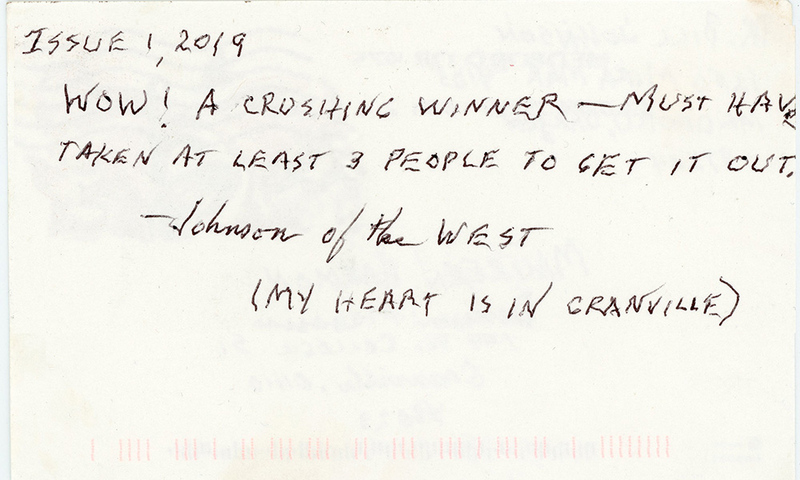 ISSUE 1, 2019
WOW! A CRUSHING WINNER — MUST HAVE
TAKEN AT LEAST 3 PEOPLE TO GET IT OUT.
—Johnson of the WEST
(MY HEART IS IN GRANVILLE)